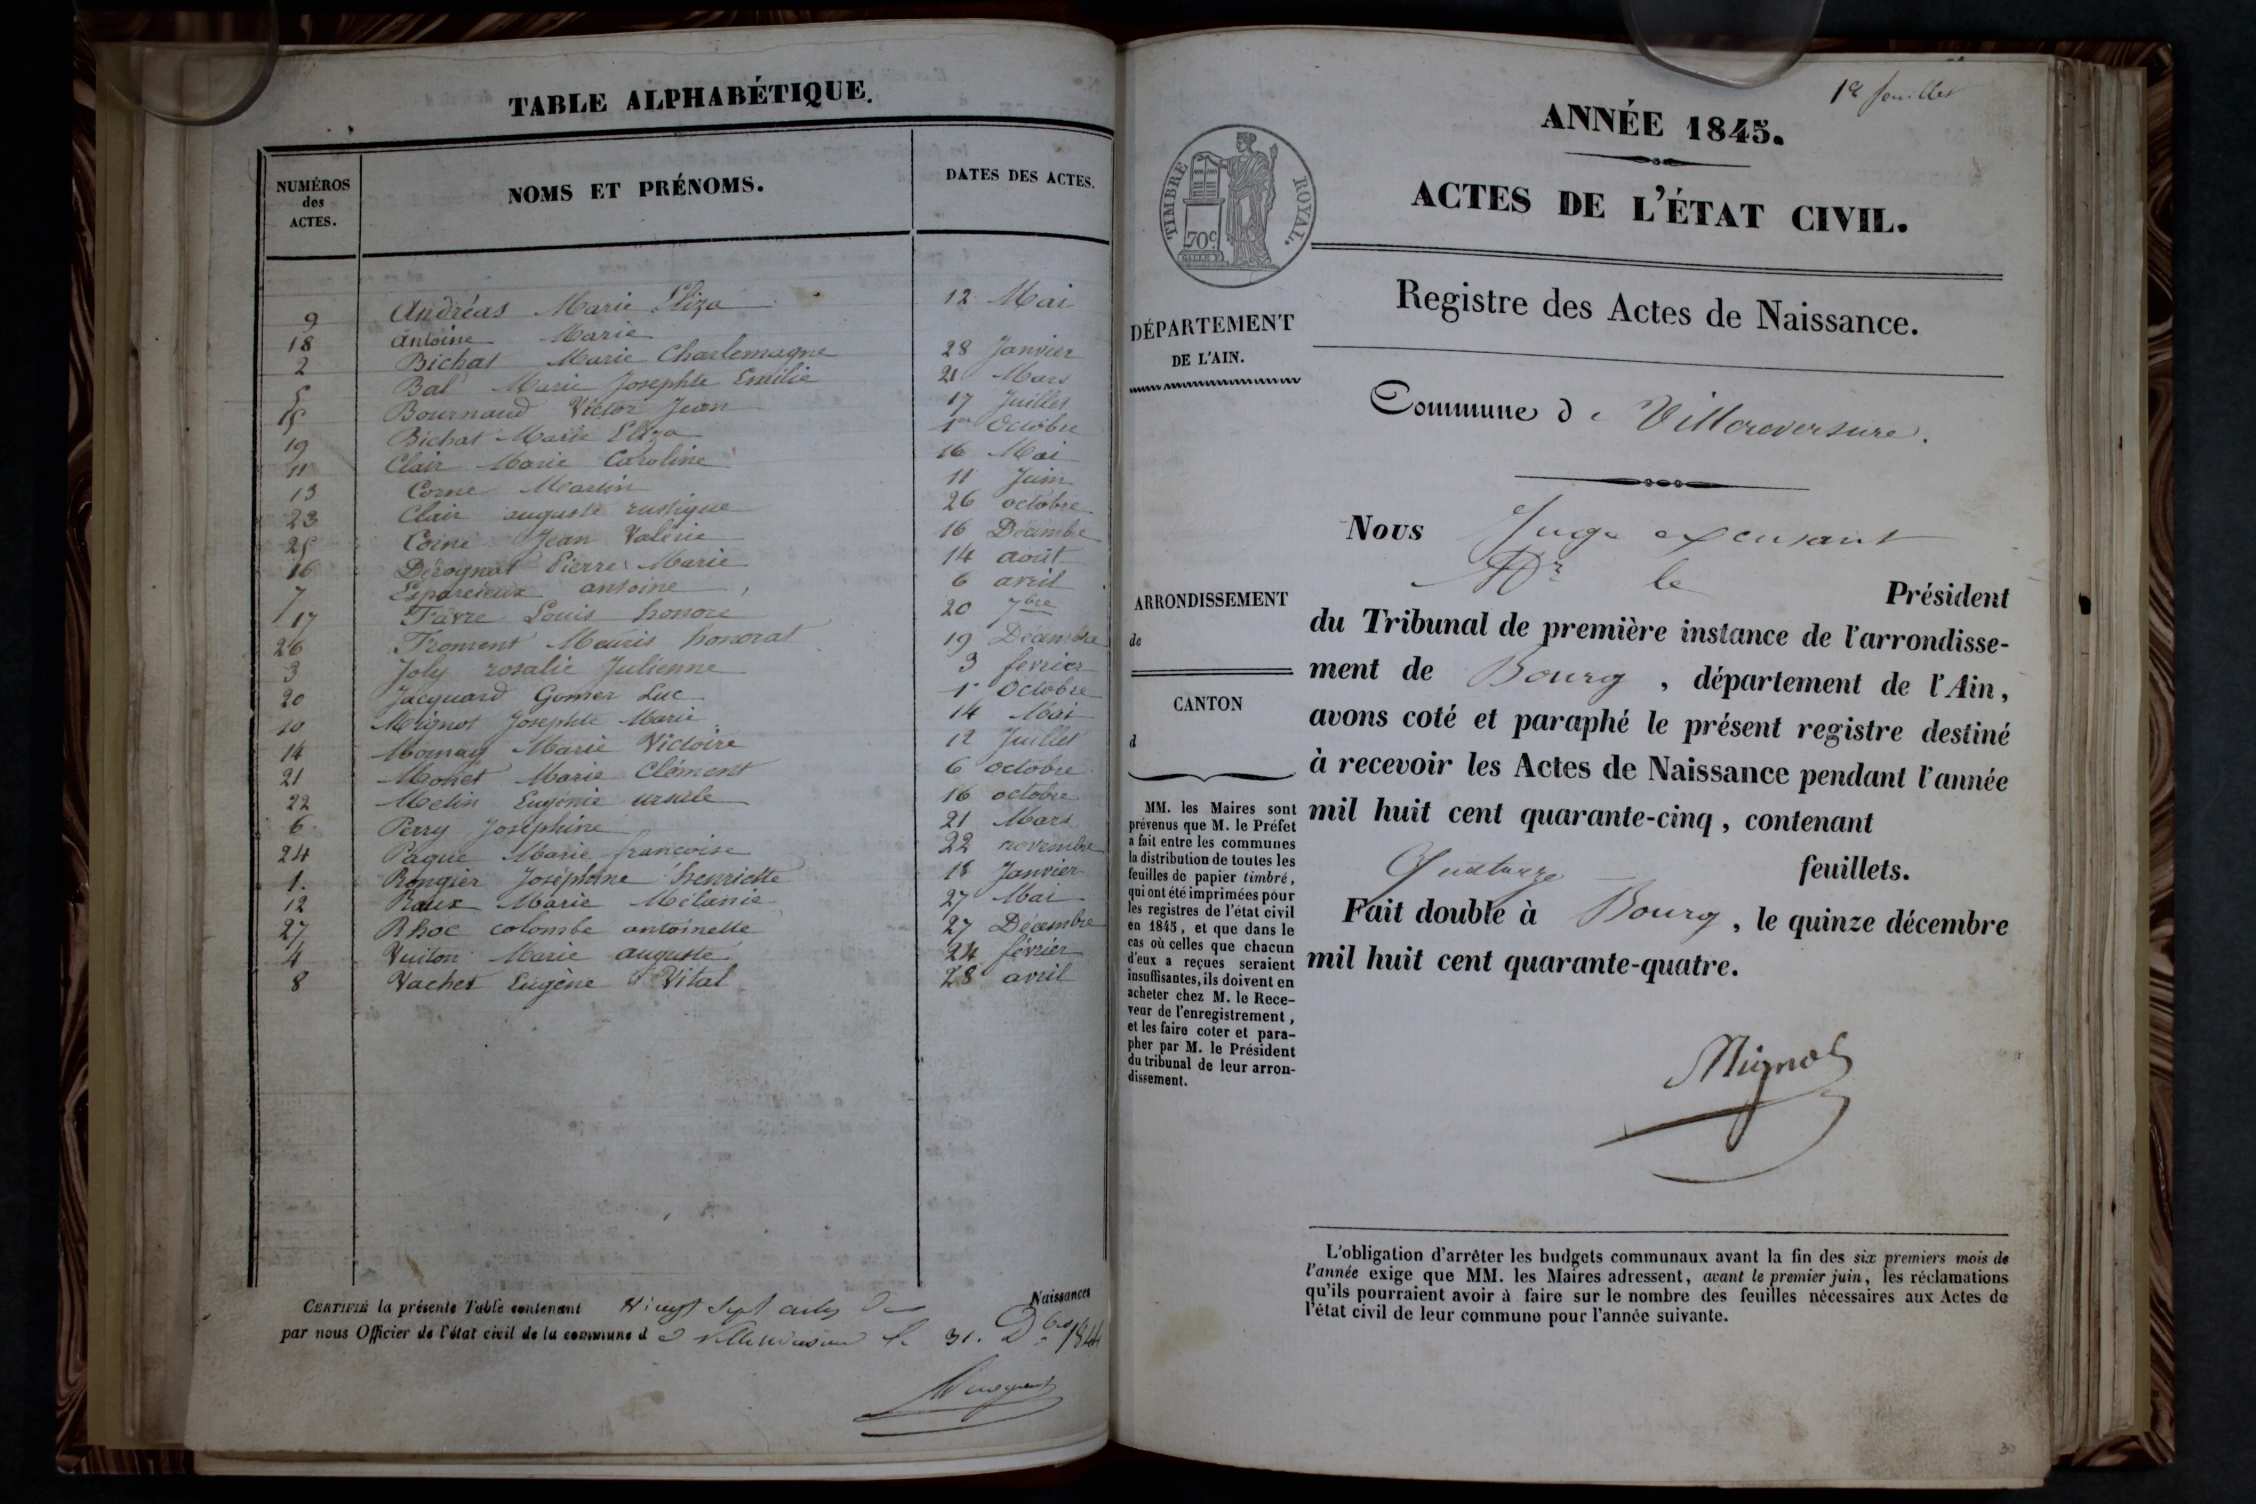 TABLE ALPHABÉTIQUE.
NUMÉROS des ACTES. NOMS ET PRÉNOMS. DATES DES ACTES.
9 Andréas Marie Eliza 12 Mai
18 Antoine Marie
2 Bichat Marie Charlemagne 28 Janvier
5 Bal Marie Josephte Emilie 21 Mars
15 Bournaud Victor Jean 17 Juillet
19 Bichat Marie Eliza 1er Octobre
11 Clair Marie Caroline 16 Mai
13 Corne Martin 11 Juin
23 Clair auguste rustique 26 octobre
25 Jean Valérie 16 Décembre
16 Pierre Marie 14 août
7 antoine 6 avril
17 Favre Louis honore 20 7bre
26 Froment Mauris honorat 19 Décembre
3 Joly rosalie Julienne 3 février
20 Jacquard Gomer Luc 1er Octobre
10 Mignot Josephte Marie 14 Mai
14 Mornay Marie Victoire 12 Juillet
21 Monet Marie Clément 6 octobre
22 Melin Eugénie ursule 16 octobre
6 Perry Josephine 21 Mars
24 Paque Marie francoise 22 novembre
1. Rongier Joséphine henriette 18 Janvier
12 Raux Marie Mélanie 27 Mai
27 Rhoc colombe antoinette 27 Décembre
4 Vuiton Marie auguste 24 février
8 Vachet Eugène Vital 28 avril
CERTIFIÉ la présente Table contenant Vingt Sept actes de Naissances
par nous Officier de l'état civil de la commune d e Villereversure le 31. Dbre 1844
1er feuillet
ANNÉE 1845.
ACTES DE L'ÉTAT CIVIL.
TIMBRE ROYAL.
70c
Registre des Actes de Naissance.
DÉPARTEMENT
DE L'AIN.
Commune de Villereversure.
Nous Juge excusant
Mr le Président
du Tribunal de première instance de l'arrondisse-
ment de Bourg, département de l'Ain,
avons coté et paraphé le présent registre destiné
à recevoir les Actes de Naissance pendant l'année
mil huit cent quarante-cinq, contenant
Quatorze feuillets.
Fait double à Bourg, le quinze décembre
mil huit cent quarante-quatre.
Mignot
ARRONDISSEMENT
de
CANTON
d
MM. les Maires sont
prévenus que M. le Préfet
a fait entre les communes
la distribution de toutes les
feuilles de papier timbré,
qui ont été imprimées pour
les registres de l'état civil
en 1845, et que dans le
cas où celles que chacun
d'eux a reçues seraient
insuffisantes, ils doivent en
acheter chez M. le Rece-
veur de l'enregistrement,
et les faire coter et para-
pher par M. le Président
du tribunal de leur arron-
dissement.
L'obligation d'arrêter les budgets communaux avant la fin des six premiers mois de
l'année exige que MM. les Maires adressent, avant le premier juin, les réclamations
qu'ils pourraient avoir à faire sur le nombre des feuilles nécessaires aux Actes de
l'état civil de leur commune pour l'année suivante.